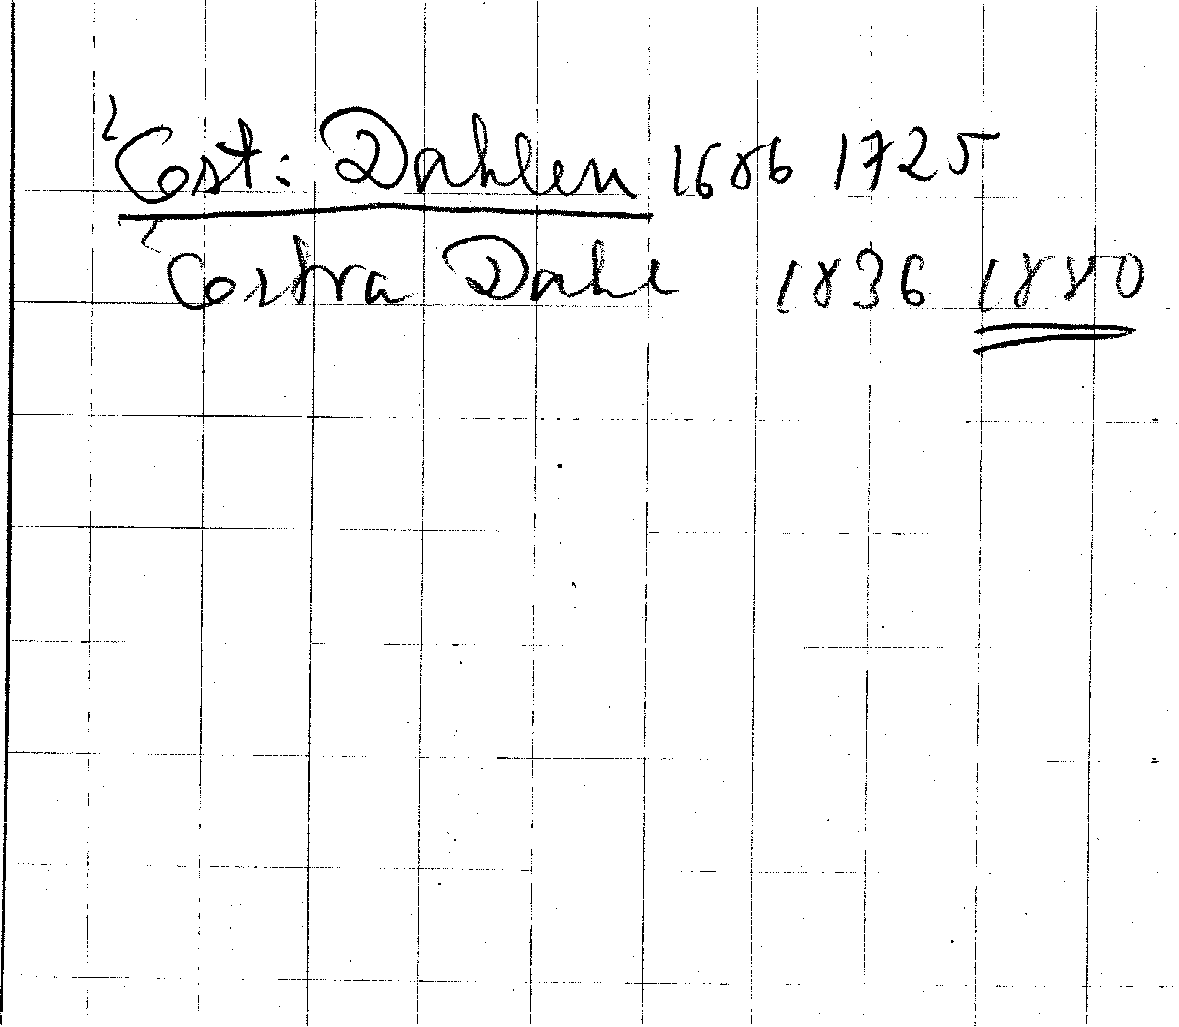 Öst: Dahlen 1686 1725
Östra Dahl 1836 1880